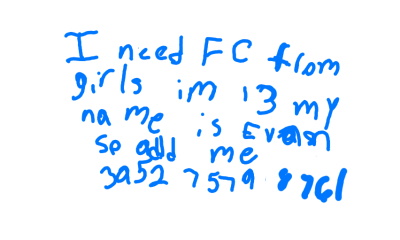 I need FC from
girls im 13 my
name is Evan
so add me
3952 7579 8761